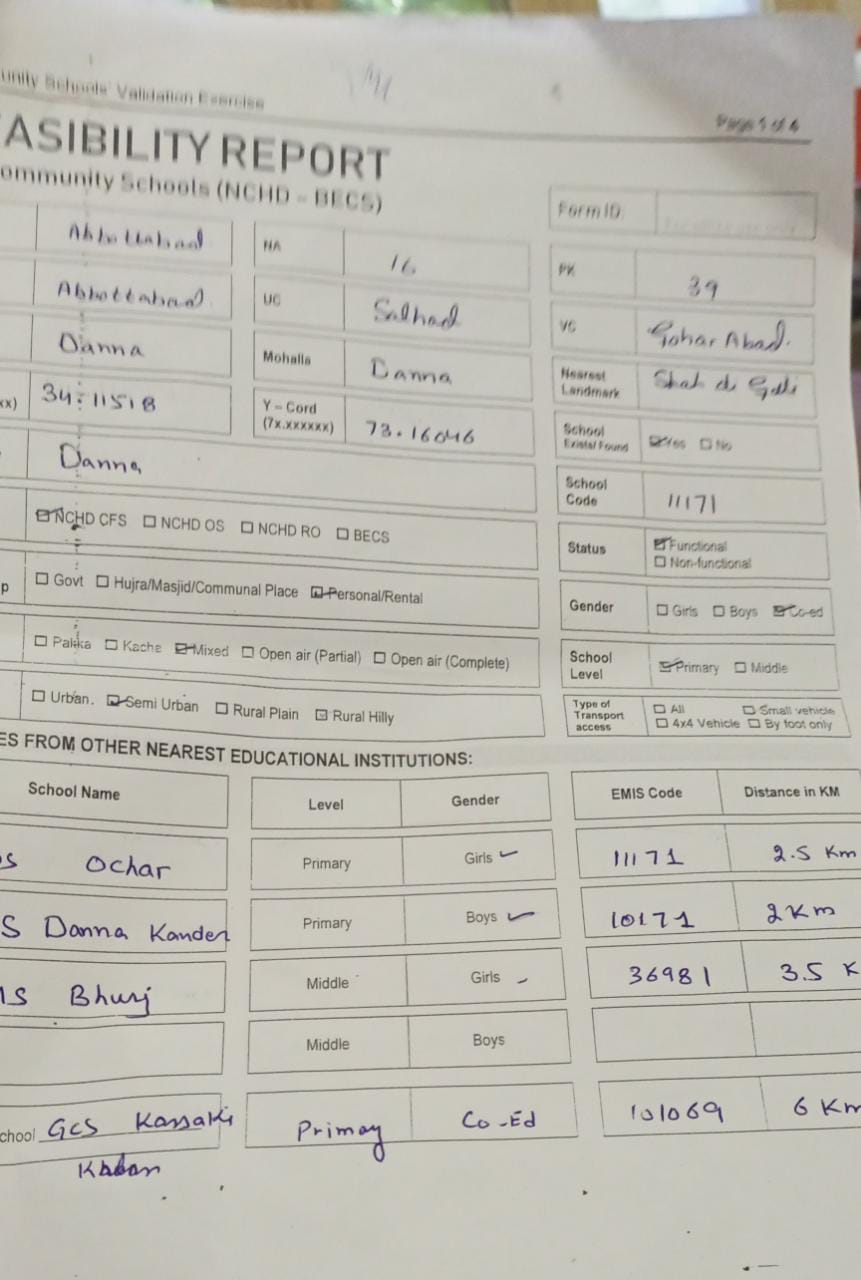 unity Schools' Validation Exercise
Page 1 of 4
EASIBILITY REPORT
ommunity Schools (NCHD – BECS)
Form ID:
Abbottabad NA 16 PK 39
Abbottabad UC Salhad VC Gohar Abad.
Danna Mohalla Danna Nearest Landmark
xx) 34.11518 Y – Cord (7x.xxxxxx) 73.16046 School Exists/Found Yes No
Danna School Code 11171
NCHD CFS NCHD OS NCHD RO BECS Status Functional Non-functional
p Govt Hujra/Masjid/Communal Place Personal/Rental Gender Girls Boys Co-ed
Pakka Kacha Mixed Open air (Partial) Open air (Complete) School Level Primary Middle
Urban. Semi Urban Rural Plain Rural Hilly Type of Transport access All Small vehicle 4x4 Vehicle By foot only
ES FROM OTHER NEAREST EDUCATIONAL INSTITUTIONS:
School Name Level Gender EMIS Code Distance in KM
S Ochar Primary Girls 11171 2.5 Km
S Danna Kander Primary Boys 10171 2 Km
MS Bhurj Middle Girls 36981 3.5 K
Middle Boys
chool GCS Primay Co-Ed 101069 6 Km